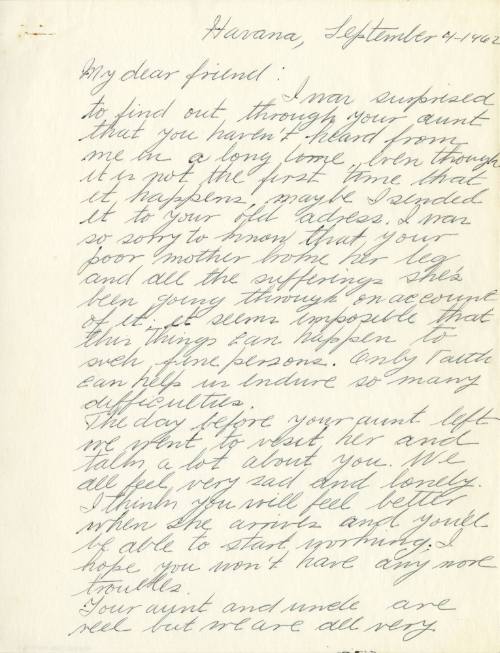 Havana, September 4-1962
My dear friend:
I was surprised
to find out, through your aunt
that you haven't heard from
me in a long time, even though
it is not the first time that
it happens, maybe I sended
it to your old adress. I was
so sorry to know that your
poor mother broke her leg
and all the sufferings she's
been going through on account
of it; it seems imposible that
this things can happen to
such fine persons. Only Faith
can help us endure so many
difficulties.
The day before your aunt left
we went to visit her and
talk a lot about you. We
all feel very sad and lonely.
I think you will feel better
when she arrives and you'll
be able to start working. I
hope you won't have any more
troubles.
Your aunt and uncle are
well but we are all very